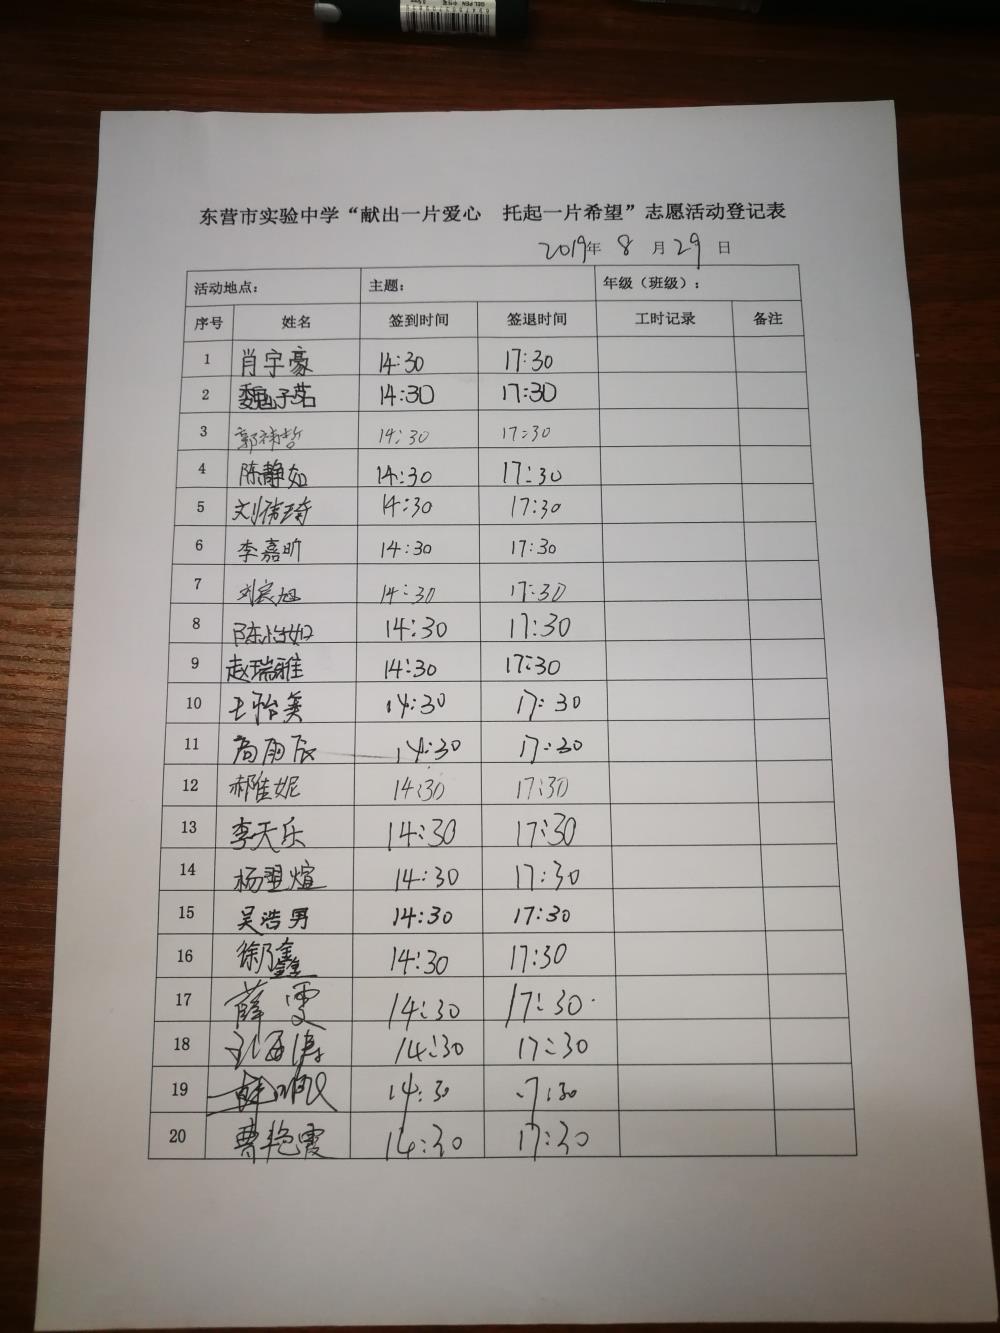 GEL PEN 中性笔
东营市实验中学“献出一片爱心 托起一片希望”志愿活动登记表
2019年 8 月 29 日
活动地点： 主题： 年级（班级）：
序号 姓名 签到时间 签退时间 工时记录 备注
1 肖宇豪 14:30 17:30
2 魏子茹 14:30 17:30
3 郭祎哲 14:30 17:30
4 陈静如 14:30 17:30
5 刘倩琦 14:30 17:30
6 李嘉昕 14:30 17:30
7 刘宸旭 14:30 17:30
8 陈怡如 14:30 17:30
9 赵瑞雅 14:30 17:30
10 王怡美 14:30 17:30
11 高雨辰 14:30 17:30
12 郝佳妮 14:30 17:30
13 李天乐 14:30 17:30
14 杨曌煊 14:30 17:30
15 吴浩男 14:30 17:30
16 徐乃鑫 14:30 17:30
17 薛雯 14:30 17:30
18 14:30 17:30
19 14:30 17:30
20 曹艳霞 14:30 17:30